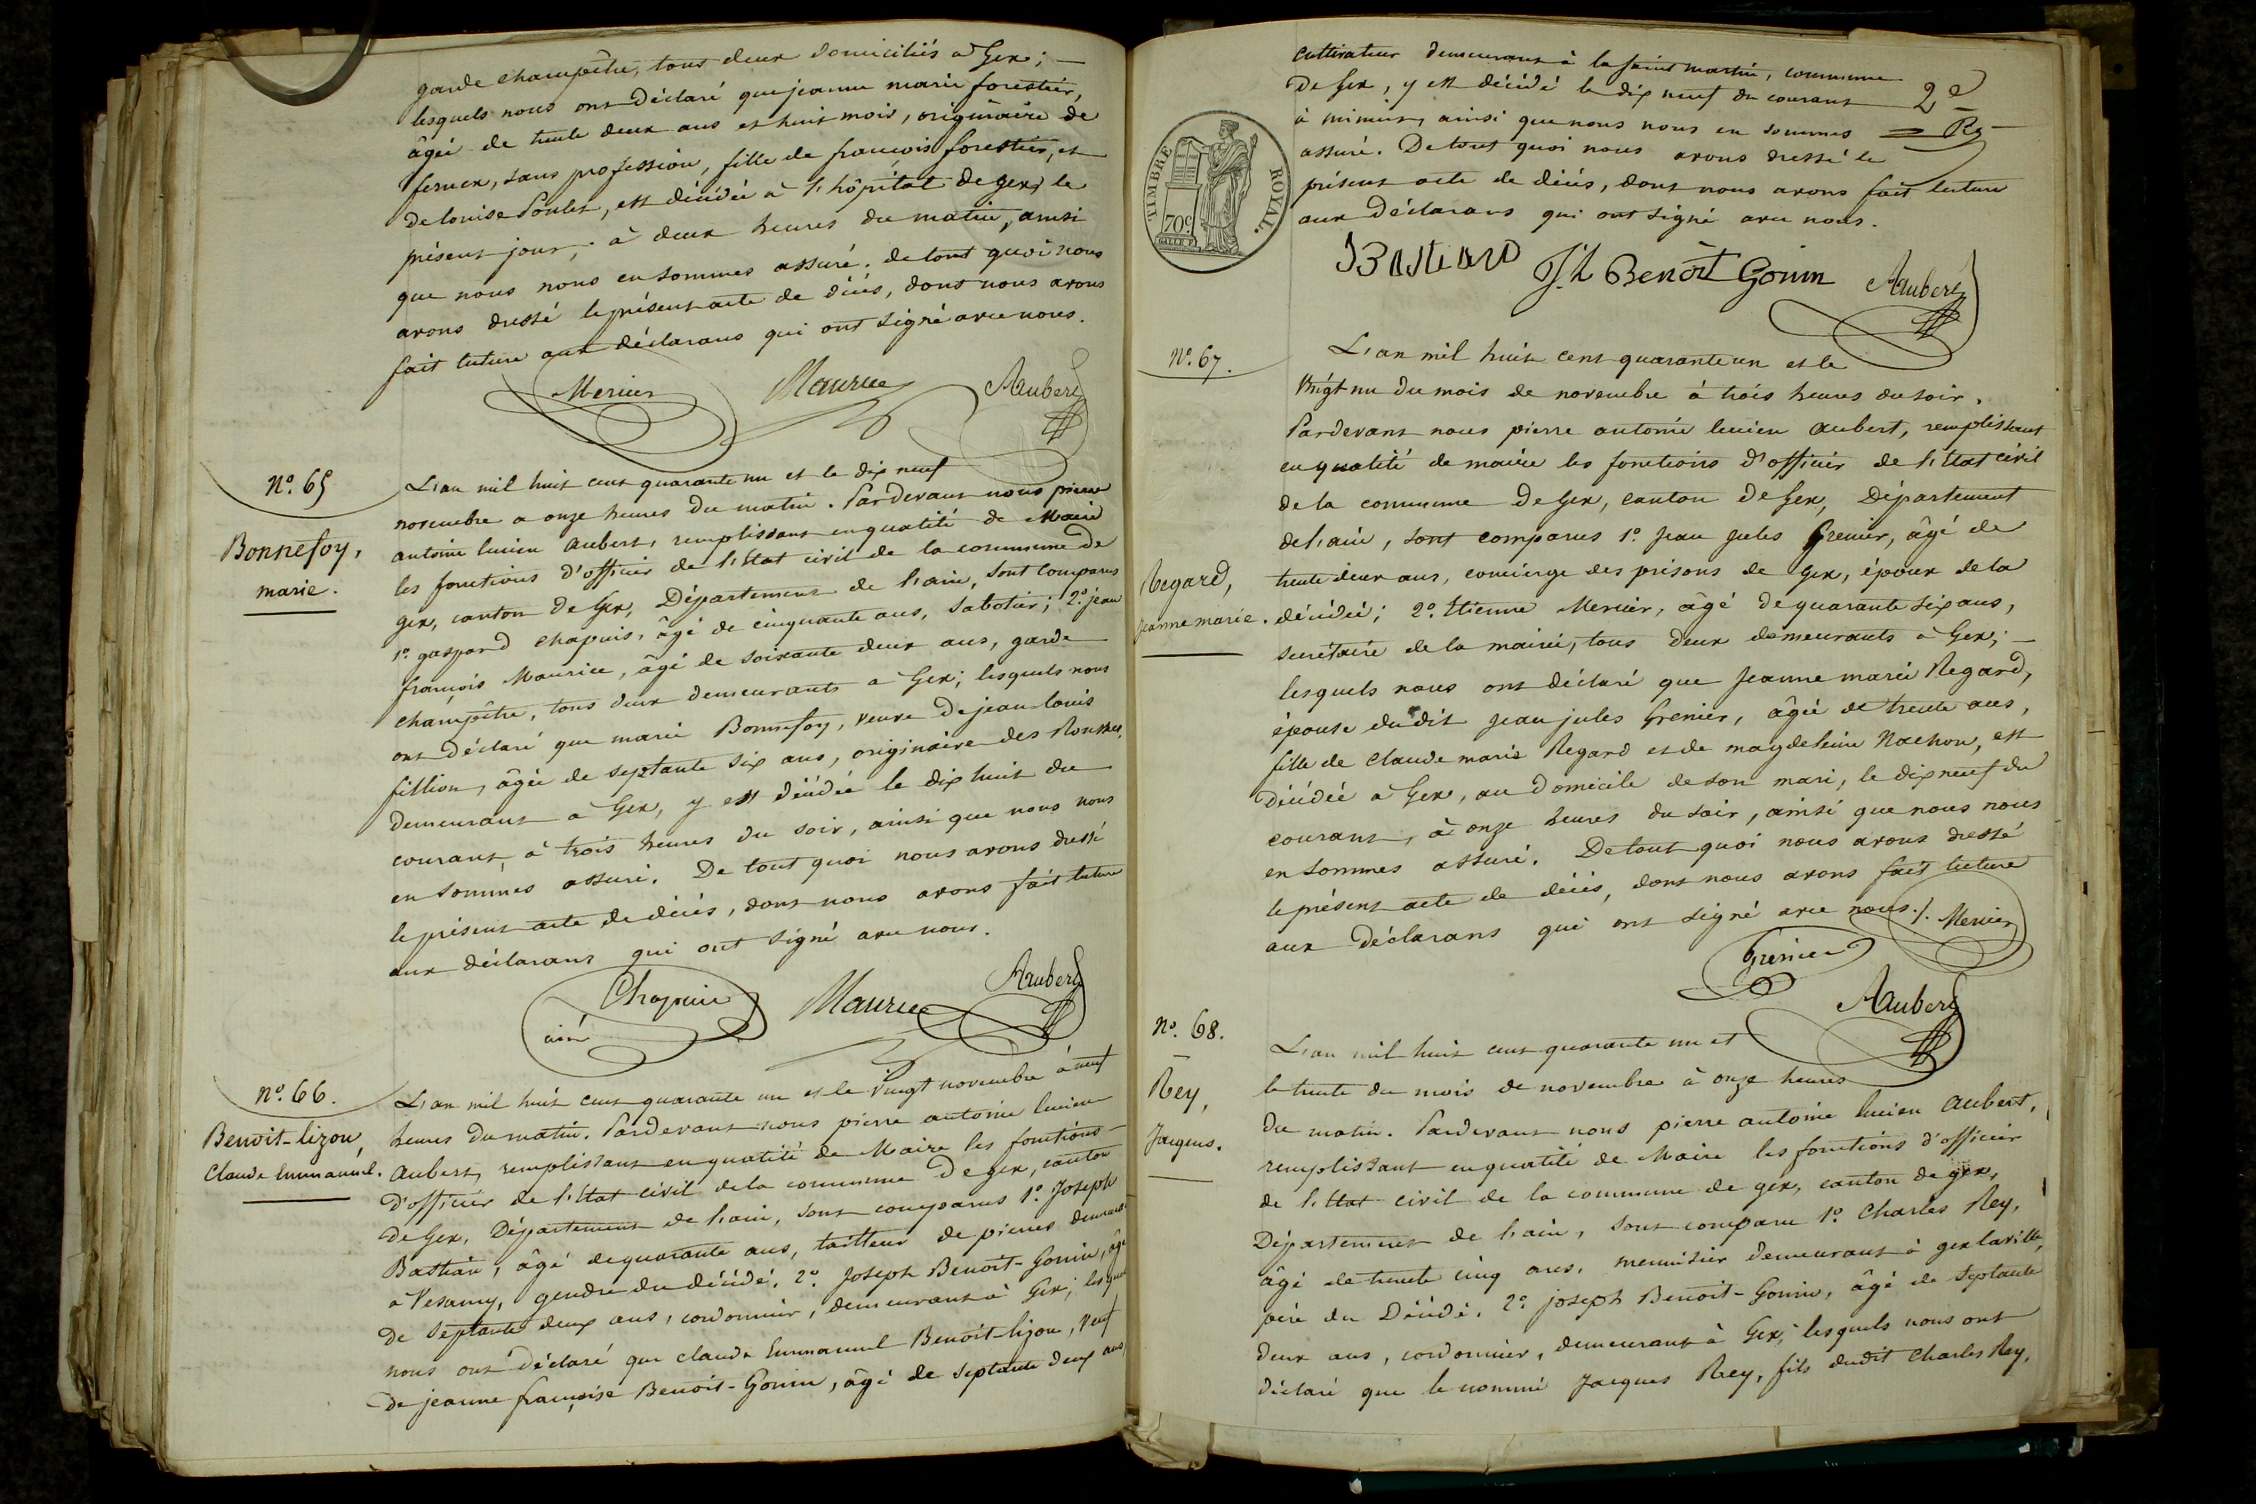 garde champêtre, tous deux domiciliés a Gex; —
lesquels nous ont déclaré que jeanne marie forestier,
âgée de trente deux ans et huit mois, originaire de
ferney, sans profession, fille de françois forestier, et
de louise Poulet, est décédée à l'hôpital de gex, le
présent jour, à deux heures du matin, ainsi
que nous nous en sommes assuré. de tout quoi nous
avons dressé le présent acte de décès, dont nous avons
fait lecture aux déclarans qui ont signé avec nous.
Mercier Maurice Aubert
N.º 65
Bonnefoy,
marie.
L'an mil huit cent quarante un et le dix neuf
novembre a onze heures du matin. Pardevant nous pierre
antoine lucien Aubert, remplissant en qualité de Maire
les fonctions d'officier de l'Etat civil de la commune de
gex, canton de Gex, Département de l'ain, sont comparus
1.º gaspard Chapuis, âgé de cinquante ans, sabotier; 2.º jean
françois Maurice, âgé de soixante deux ans, garde
champêtre, tous deux demeurants a Gex; lesquels nous
ont déclaré que marie Bonnefoy, veuve de jean louis
fillion, âgée de septante six ans, originaire des Rousses,
demeurant a Gex, y est décédée le dix huit du
courant, à trois heures du soir, ainsi que nous nous
en sommes assuré. De tout quoi nous avons dressé
le présent acte de décès, dont nous avons fait lecture
aux déclarans qui ont signé avec nous.
Chapuis Maurice Aubert
ainé
N.º 66.
Benoit-lizon,
Claude Emmanuel.
L'an mil huit cent quarante un et le vingt novembre à neuf
heures du matin. Pardevant nous pierre antoine lucien
Aubert, remplissant en qualité de Maire les fonctions
d'officier de l'Etat civil de la commune de gex, canton
de Gex, Département de l'ain, sont comparus 1.º Joseph
Bastian, âgé de quarante ans, tailleur de pierres demeurant
a Vesancy, gendre du décédé. 2.º Joseph Benoit-Gonin, âgé
de septante deux ans, cordonnier, demeurant à Gex; lesquels
nous ont déclaré que claude Emmanuel Benoit-lizon, veuf
de jeanne françoise Benoit-Gonin, âgé de septante deux ans,
cultivateur demeurant à la Saint martin, commune
de Gex, y est décédé le dix neuf du courant
à minuit, ainsi que nous nous en sommes
assuré. De tout quoi nous avons dressé le
présent acte de décès, dont nous avons fait lecture
aux déclarans qui ont signé avec nous.
2e
TIMBRE ROYAL.
70c
Bastian Jh Benoit Gonin Aubert
N.º 67.
Regard,
Jeanne marie.
L'an mil huit cent quarante un et le
vingt un du mois de novembre à trois heures du soir.
Pardevant nous pierre antoine lucien Aubert, remplissant
en qualité de maire les fonctions d'officier de l'Etat civil
de la commune de Gex, canton de Gex, Département
de l'ain, sont comparus 1.º Jean Jules Grenier, âgé de
trente deux ans, concierge des prisons de Gex, époux de la
décédée; 2.º Etienne Mercier, âgé de quarante six ans,
secrétaire de la mairie, tous deux demeurants à Gex; —
lesquels nous ont déclaré que Jeanne marie Regard,
épouse du dit Jean jules Grenier, âgée de trente ans,
fille de Claude marie Regard et de magdeleine Nachon, est
décédée a Gex, au domicile de son mari, le dix neuf du
courant, à onze heures du soir, ainsi que nous nous
en sommes assuré. De tout quoi nous avons dressé
le présent acte de décès, dont nous avons fait lecture
aux déclarans qui ont signé avec nous./. Mercier
Grenier
Aubert
N.º 68.
Rey,
Jacques.
L'an mil huit cent quarante un et
le trente du mois de novembre à onze heures
du matin. Pardevant nous pierre antoine lucien Aubert,
remplissant en qualité de Maire les fonctions d'officier
de l'Etat civil de la commune de gex, canton de gex,
Département de l'ain, sont comparu 1.º Charles Rey,
âgé de trente cinq ans, menuisier demeurant à gex la ville,
père du Décédé. 2.º joseph Benoit-Gonin, âgé de septante
deux ans, cordonnier, demeurant à Gex; lesquels nous ont
déclaré que le nommé Jacques Rey, fils dudit Charles Rey,